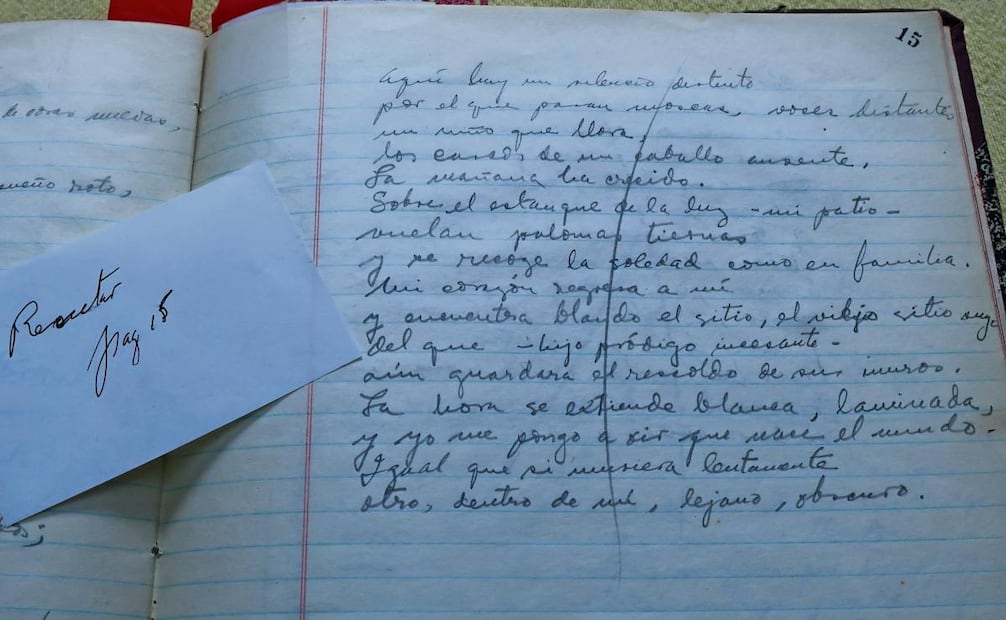 de cosas nuevas,
sueño roto,
Rescatar
pag 15
15
Aquí hay un silencio distinto
por el que pasan moscas, voces distantes
un niño que llora,
los cascos de un caballo ausente.
La mañana ha crecido.
Sobre el estanque de la luz -mi patio-
vuelan palomas tiernas
y se recoge la soledad como en familia.
Mi corazón regresa a mí
y encuentra blando el sitio, el viejo sitio
del que -hijo pródigo incesante-
aún guardara el rescoldo de sus muros.
La hora se extiende blanca, laminada,
y yo me pongo a oir que nace el mundo.
Igual que si muriera lentamente
otro, dentro de mí, lejano, obscuro.